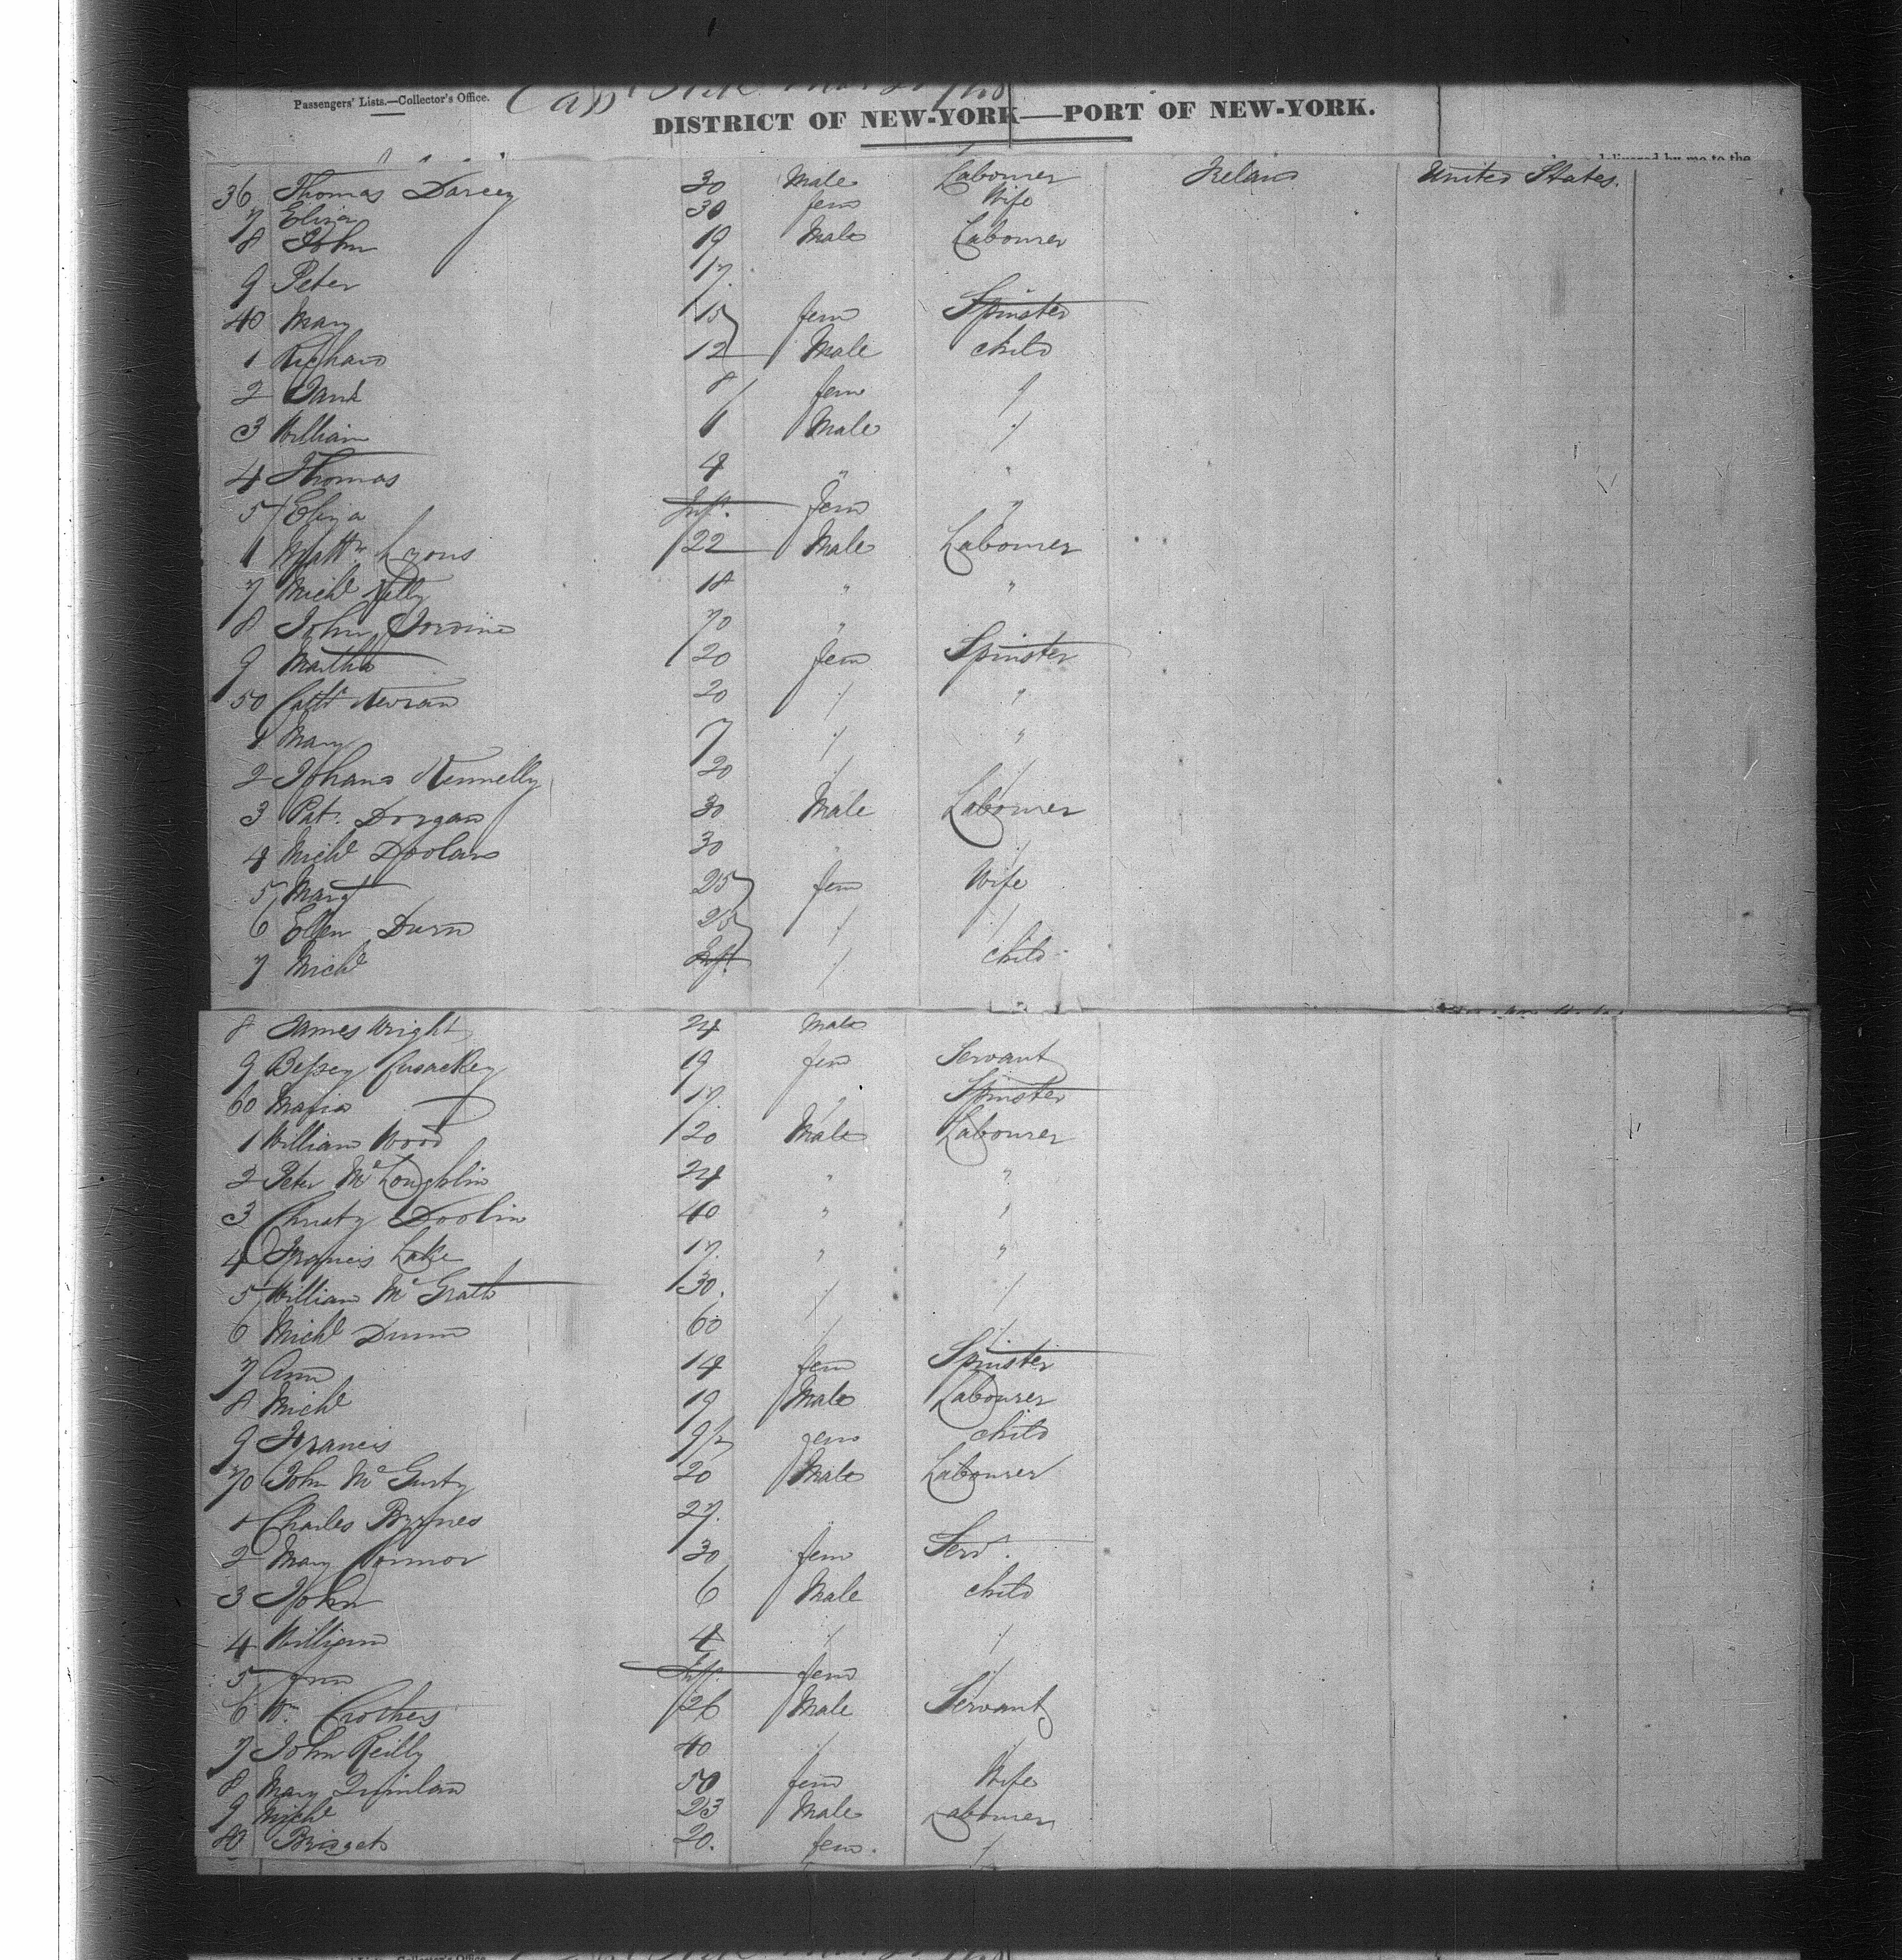 Passengers' Lists.—Collector's Office.
DISTRICT OF NEW-YORK—PORT OF NEW-YORK.
delivered by me to the
36 Thomas Darcey 30 Male Labourer Ireland United States.
7 Eliza 30 fem Wife
8 John 19 Male Labourer
9 Peter 17
40 Mary 15 fem Spinster
1 Richard 12 Male child
2 8 fem "
3 William 6 Male "
4 Thomas 4 " "
5 Eliza Inft. fem "
6 Matth Lyons 22 Male Labourer
7 Michl Kelly 18 " "
8 John 70 "
9 Martha 20 fem Spinster
50 Cath 20 " "
1 Mary 7 " "
2 Johana Kennelly 20 " "
3 Pat. Dorgan 30 Male Labourer
4 Michl Doolan 30 " "
5 Margt 25 fem Wife
6 Ellen Durn 25 " "
7 Michl Inft. " child
8 James Wright 24 Male
9 Bessey Cusackey 19 fem Servant
60 Maria 17 " Spinster
1 William Wood 20 Male Labourer
2 Peter McLoughlin 24 " "
3 Christy Doolin 40 " "
4 Francis Lake 17 " "
5 William McGrath 30. " "
6 Michl Dunn 60 " "
7 Ann 14 fem Spinster
8 Michl 19 Male Labourer
9 Francis 9 fem child
70 John McGurty 20 Male Labourer
1 Charles Byrnes 27.
2 Mary Connor 30 fem Serv.
3 John 6 Male child
4 William 4 " "
5 Inft. fem "
6 Wm Crothers 26 Male Servant
7 John Reilly 40 " "
8 Mary Quinlan 50 fem Wife
9 Michl 23 Male Labourer
80 Bridget 20. fem. "